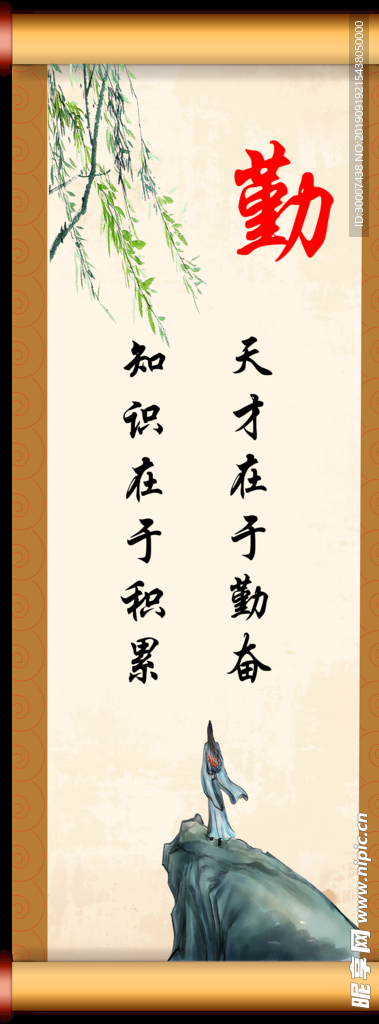 勤
天才在于勤奋
知识在于积累
ID:30007438 NO:20190919215438050000
昵享网 www.nipic.cn